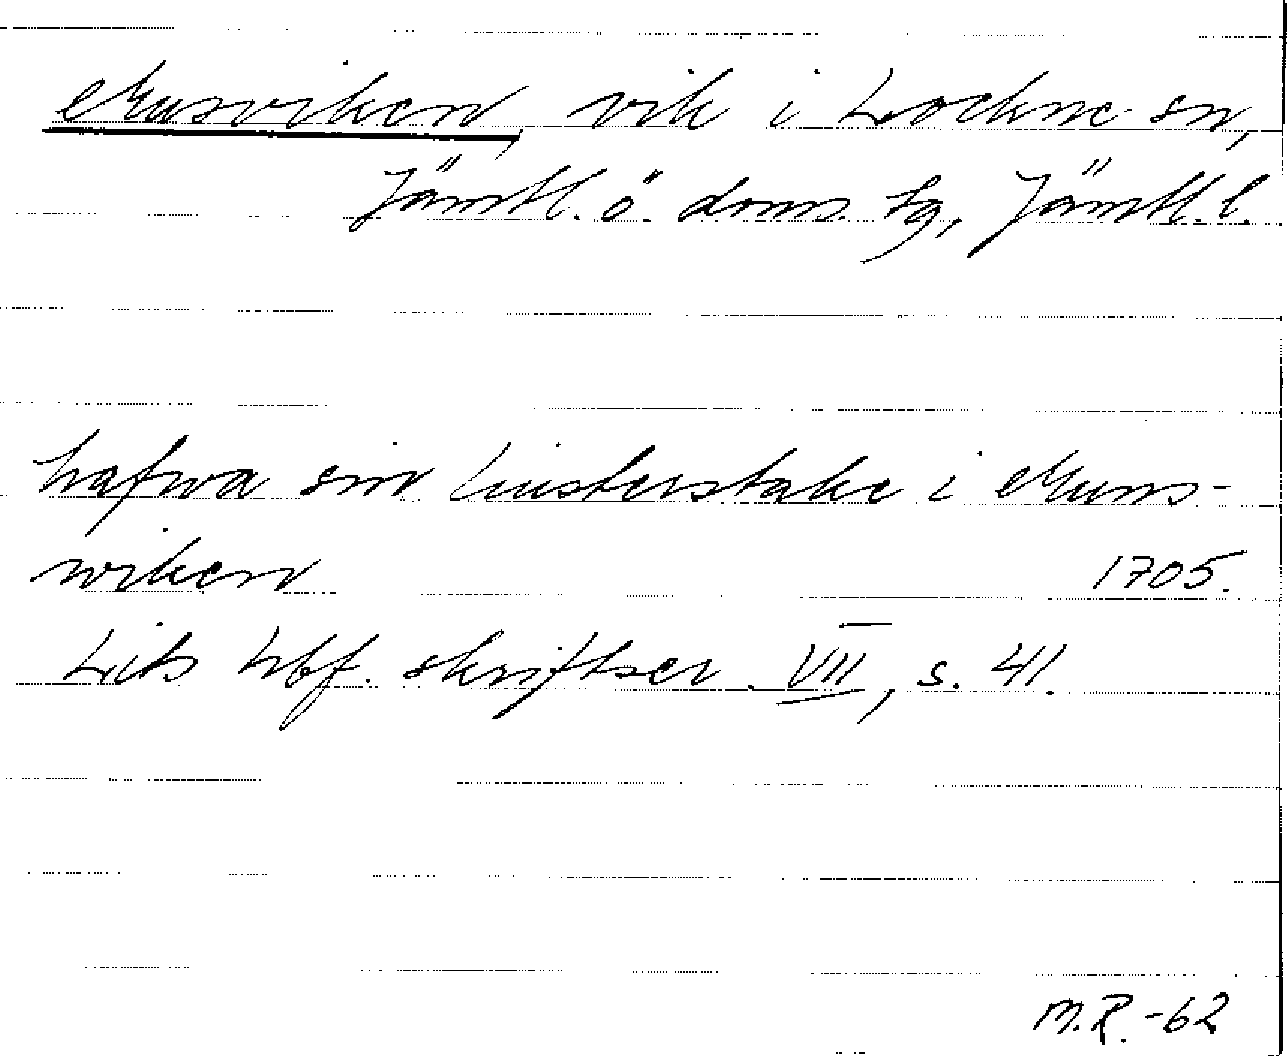 Musviken, vik i Lockne sn,
Jämtl. ö. doms. tg, Jämtl. l.
hafwa sin Liusterstake i Muus-
wiken 1705.
Lits hbf. skriftser. VII, s. 41.
M.R. -62